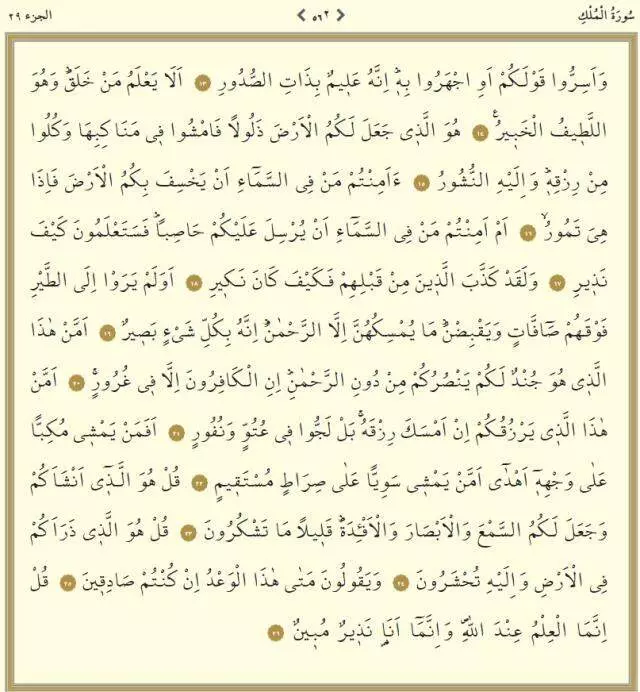 سُورَةُ الْمُلْكِ ٥٦٢ الجزء ٢٩
وَاَسِرُّوا قَوْلَكُمْ اَوِ اجْهَرُوا بِهٖۜ اِنَّهُ عَلٖيمٌ بِذَاتِ الصُّدُورِ ١٣ اَلَا يَعْلَمُ مَنْ خَلَقَۜ وَهُوَ
اللَّطٖيفُ الْخَبٖيرُ۟ ١٤ هُوَ الَّذٖي جَعَلَ لَكُمُ الْاَرْضَ ذَلُولًا فَامْشُوا فٖي مَنَاكِبِهَا وَكُلُوا
مِنْ رِزْقِهٖۜ وَاِلَيْهِ النُّشُورُ ١٥ ءَاَمِنْتُمْ مَنْ فِي السَّمَٓاءِ اَنْ يَخْسِفَ بِكُمُ الْاَرْضَ فَاِذَا
هِيَ تَمُورُۙ ١٦ اَمْ اَمِنْتُمْ مَنْ فِي السَّمَٓاءِ اَنْ يُرْسِلَ عَلَيْكُمْ حَاصِباًۜ فَسَتَعْلَمُونَ كَيْفَ
نَذٖيرِ ١٧ وَلَقَدْ كَذَّبَ الَّذٖينَ مِنْ قَبْلِهِمْ فَكَيْفَ كَانَ نَكٖيرِ ١٨ اَوَلَمْ يَرَوْا اِلَى الطَّيْرِ
فَوْقَهُمْ صَٓافَّاتٍ وَيَقْبِضْنَۜ مَا يُمْسِكُهُنَّ اِلَّا الرَّحْمٰنُۜ اِنَّهُ بِكُلِّ شَيْءٍ بَصٖيرٌ ١٩ اَمَّنْ هٰذَا
الَّذٖي هُوَ جُنْدٌ لَكُمْ يَنْصُرُكُمْ مِنْ دُونِ الرَّحْمٰنِۜ اِنِ الْكَافِرُونَ اِلَّا فٖي غُرُورٍۚ ٢٠ اَمَّنْ
هٰذَا الَّذٖي يَرْزُقُكُمْ اِنْ اَمْسَكَ رِزْقَهُۚ بَلْ لَجُّوا فٖي عُتُوٍّ وَنُفُورٍ ٢١ اَفَمَنْ يَمْشٖي مُكِبًّا
عَلٰى وَجْهِهٖٓ اَهْدٰٓى اَمَّنْ يَمْشٖي سَوِيًّا عَلٰى صِرَاطٍ مُسْتَقٖيمٍ ٢٢ قُلْ هُوَ الَّذٖٓي اَنْشَاَكُمْ
وَجَعَلَ لَكُمُ السَّمْعَ وَالْاَبْصَارَ وَالْاَفْـِٔدَةَۜ قَلٖيلًا مَا تَشْكُرُونَ ٢٣ قُلْ هُوَ الَّذٖي ذَرَاَكُمْ
فِي الْاَرْضِ وَاِلَيْهِ تُحْشَرُونَ ٢٤ وَيَقُولُونَ مَتٰى هٰذَا الْوَعْدُ اِنْ كُنْتُمْ صَادِقٖينَ ٢٥ قُلْ
اِنَّمَا الْعِلْمُ عِنْدَ اللّٰهِۖ وَاِنَّمَٓا اَنَا۬ نَذٖيرٌ مُبٖينٌ ٢٦